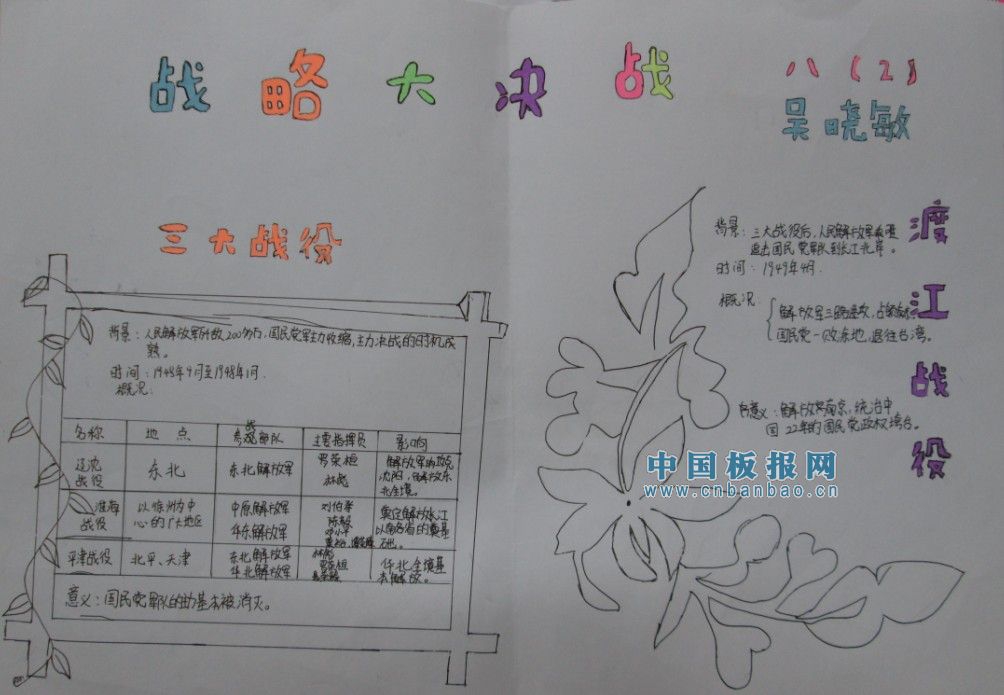 战略大决战
八(2)
吴晓敏
三大战役
背景:人民解放军开数200多万,国民党军主力收缩,主力决战的时机成
熟。
时间:1948年9月至1948年1月.
概况:
名称 地点 参战部队 主要指挥员 影响
辽沈战役 东北 东北解放军 罗荣桓 林彪 解放 沈阳,解放东北全境。
淮海战役 以徐州为中心的广大地区 中原解放军 华东解放军 刘伯承 陈毅 邓小平 奠定解放长江以南各省的奠基石出。
平津战役 北平、天津 东北解放军 华北解放军 林彪 罗荣桓 聂荣臻 华北全境基本解放。
意义:国民党军队的主力基本被消灭。
渡江战役
背景:三大战役后,人民解放军
追击国民党军队到长江北岸。
时间:1949年4月.
概况
解放军三路进攻,占领
国民党一败涂地,退往台湾。
意义:解放军南京,统治中
国22年的国民党政权垮台。
中国板报网
www.cnbanbao.cn